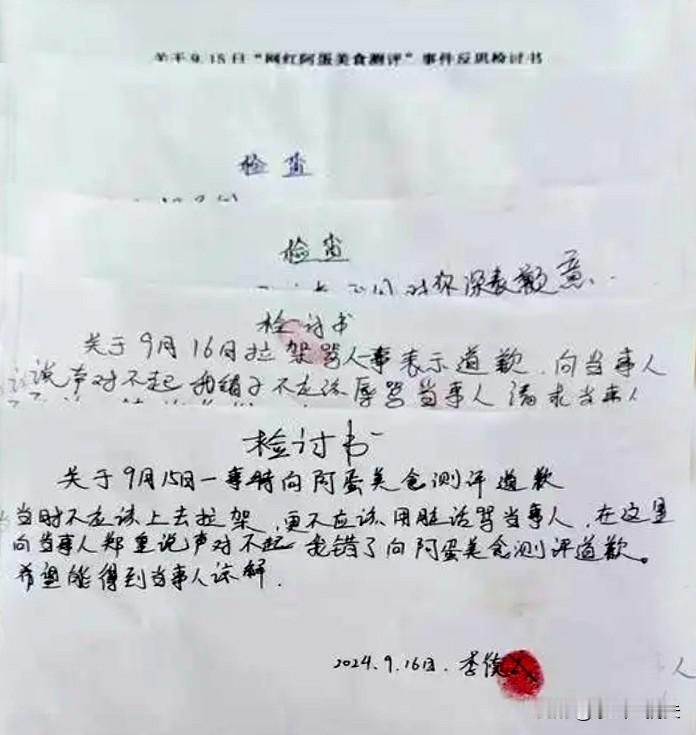 关于9.15日“网红阿蛋美食测评”事件反思检讨书
检查
检查
对你深表歉意.
检讨书
关于9月16日拉架骂人一事表示道歉.向当事人
说声对不起 我错了不应该辱骂当事人 请求当事人
检讨书
关于9月15日一事特向阿蛋美食测评道歉
当时不应该上去拉架,更不应该用脏话骂当事人,在这里
向当事人郑重说声对不起 我错了向阿蛋美食测评道歉。
希望能得到当事人谅解.
2024.9.16日. 李俊
人